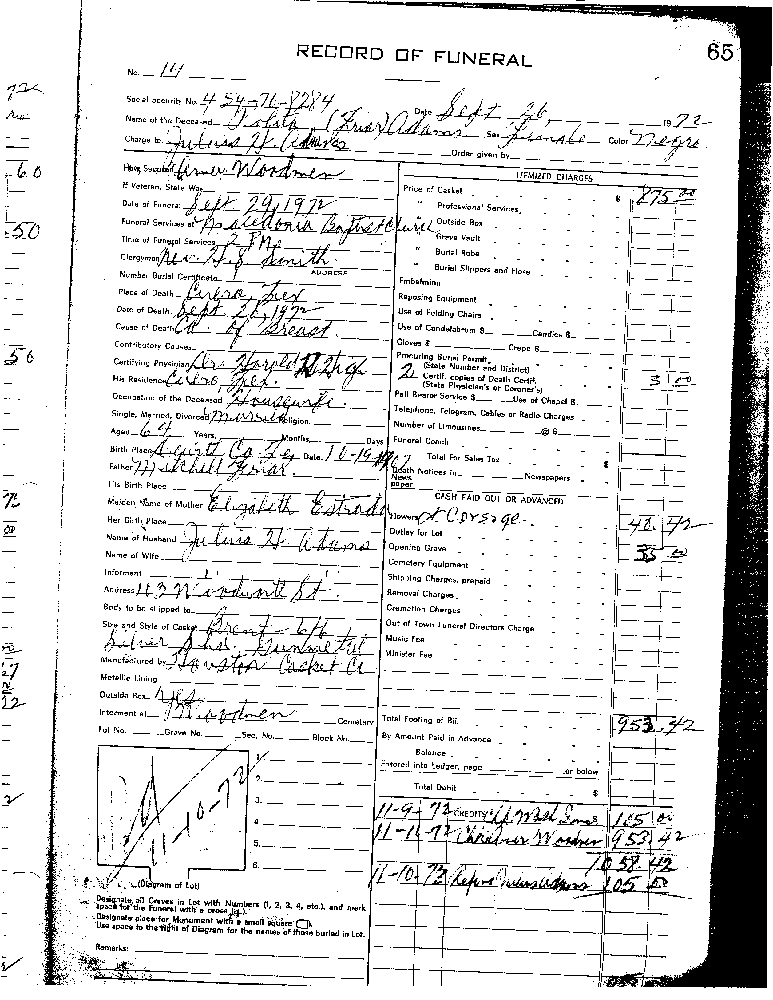 65
RECORD OF FUNERAL
No. 111
Social security No. 454-76-8284
Date Sept 26, 1972
Name of the Deceased (Friar) Adams Sex Female Color Negro
Charge to Julius H. Adams Order given by
How Secured Woodmen
If Veteran, State War
Date of Funeral Sept 29, 1972
Funeral Services at Macedonia Baptist Church
Time of Funeral Services 2 PM
Clergyman Rev. H.S. Smith
ADDRESS
Number Burial Certificate
Place of Death Cuero, Tex
Date of Death Sept 26, 1972
Cause of Death Ca. of Breast.
Contributory Causes
Certifying Physician Dr. Harold
His Residence Cuero, Tex.
Occupation of the Deceased Housewife.
Single, Married, Divorced Married Religion
Aged 64 Years, Months, Days
Birth Place Co Tex Date 10-19
Father Mitchell Friar.
His Birth Place
Maiden Name of Mother Elizabeth Estrada
Her Birth Place
Name of Husband Julius H. Adams
Name of Wife
Informant
Address 113 Woodworth St.
Body to be shipped to
Size and Style of Casket Brent - 6/6
Silver Gunmetal
Manufactured by Houston Casket Co
Metallic Lining
Outside Box Yes
Interment at Woodmen Cemetery
Lot No. Grave No. Sec. No. Block No.
1.
2.
3.
4.
5.
6.
11-10-72
(Diagram of Lot)
Designate all Graves in Lot with Numbers (1, 2, 3, 4, etc.), and mark
space for the Funeral with a cross
Designate place for Monument with a small square
Use space to the right of Diagram for the names of those buried in Lot.
Remarks:
ITEMIZED CHARGES
Price of Casket $ 875 00
" Professional Services,
" Outside Box
" Grave Vault
" Burial Robe
" Burial Slippers and Hose
Embalming
Reposing Equipment
Use of Folding Chairs
Use of Candelabrum $ Candles $
Gloves $ Crepe $
Procuring Burial Permit,
(State Number and District)
2 Certif. copies of Death Certif. 3 00
(State Physician's or Coroner's)
Pall Bearer Service $ Use of Chapel $
Telephone, Telegram, Cables or Radio Charges
Number of Limousines @ $
Funeral Coach
Total For Sales Tax $
Death Notices in Newspapers
News
paper
CASH PAID OUT OR ADVANCED
Flowers & Corsage 40.42
Outlay for Lot
Opening Grave 35 00
Cemetery Equipment
Shipping Charges, prepaid
Removal Charges
Cremation Charges
Out of Town Funeral Directors Charge
Music Fee
Minister Fee
Total Footing of Bill 953.42
By Amount Paid in Advance
Balance
Entered into Ledger, page or below
Total Debit $
11-9-72 CREDITS 105 00
11-11-72 Woodmen 953.42
1058.42
11-10-72 Refund Julius Adams 105 00